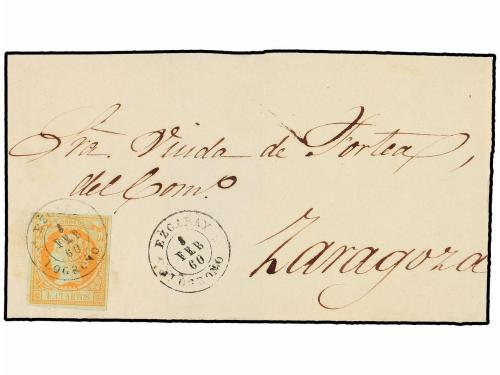 Sra. Viuda de Fortea,
del Comº.
Zaragoza
EZCARAY
8
FEB
60
LOGROÑO
EZCARAY
8
FEB
60
LOGROÑO
4 CUARTOS